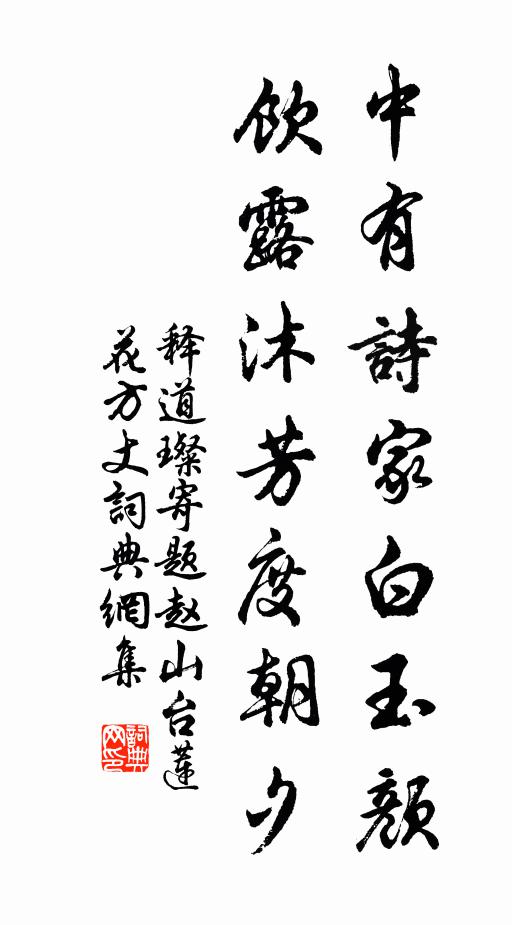 中有詩家白玉顏
飲露沐芳度朝夕
释道璨寄题赵山台蓮
花方丈詞典網集
詞典网印